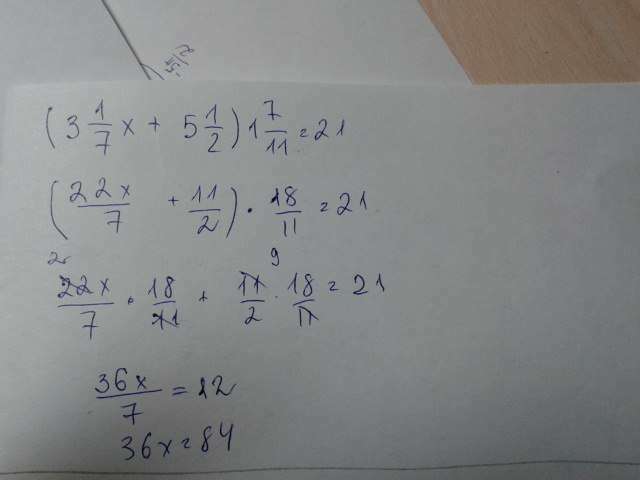 (3 1/7 x + 5 1/2) 1 7/11 = 21
(22x/7 + 11/2) · 18/11 = 21
2 9
22x/7 · 18/11 + 11/2 · 18/11 = 21
36x/7 = 12
36x = 84